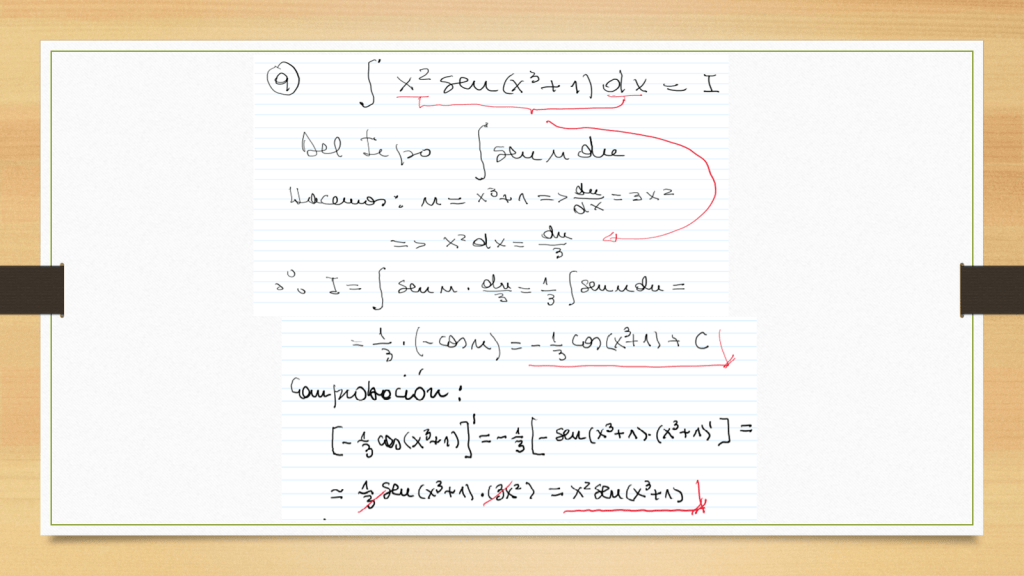 9 ∫ x² sen(x³+1) dx = I
Del tipo ∫ sen u du
Hacemos: u = x³+1 => du/dx = 3x²
=> x² dx = du/3
∴ I = ∫ sen u · du/3 = 1/3 ∫ sen u du =
= 1/3 · (-cos u) = -1/3 cos(x³+1) + C
Comprobación:
[-1/3 cos(x³+1)]' = -1/3 [-sen(x³+1)·(x³+1)'] =
= 1/3 sen(x³+1)·(3x²) = x² sen(x³+1)